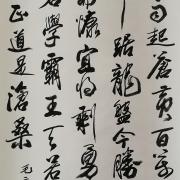 雨起蒼黃百萬
踞龍盤今勝
慷宜將剩勇
名學霸王天若
正道是滄桑
毛